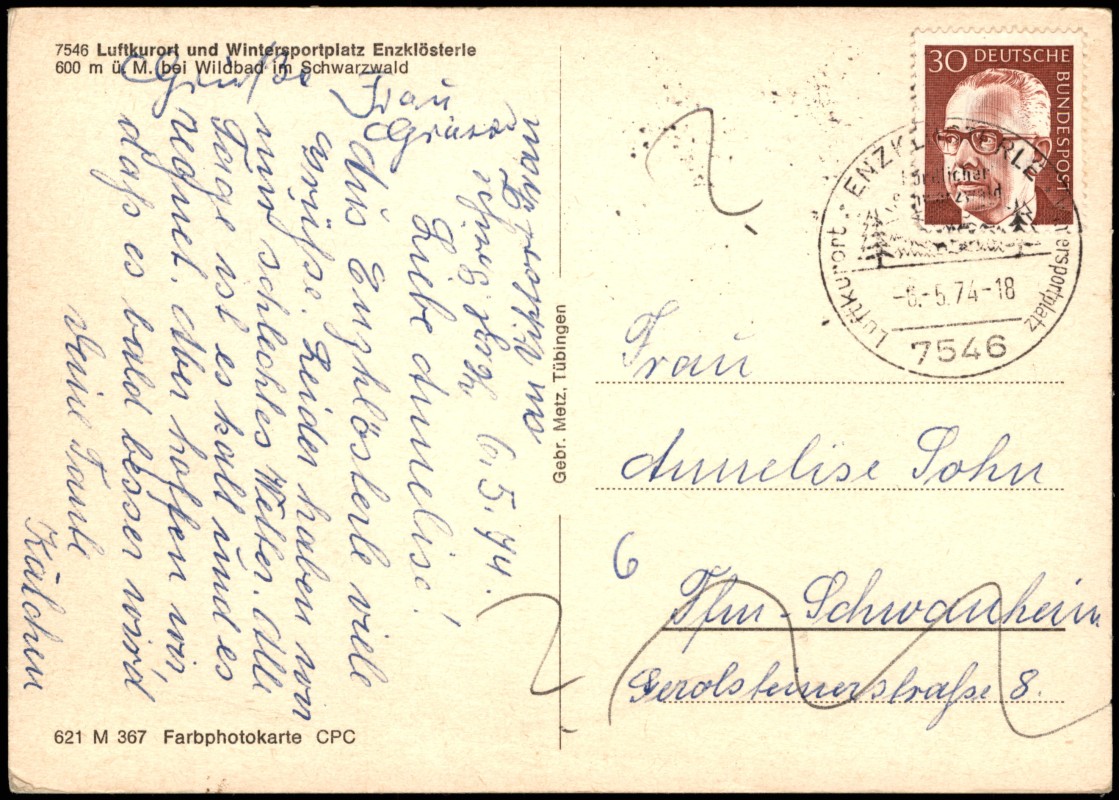 7546 Luftkurort und Wintersportplatz Enzklösterle
600 m ü. M. bei Wildbad im Schwarzwald
6.5.74.
Liebe Annelise!
Aus Enzklösterle viele
Grüße. Leider haben wir
nur schlechtes Wetter. Alle
Tage ist es kalt und es
regnet. Aber hoffen wir,
daß es bald besser wird
Deine Tante
Käthchen
Grüße
Frau
621 M 367 Farbphotokarte CPC
Gebr. Metz, Tübingen
30 DEUTSCHE BUNDESPOST
Luftkurort - ENZKLÖSTERLE - Wintersportplatz
-6.-5.74-18
7546
Frau
Annelise Sohn
6
Ffm-Schwanheim
Gerolsteinerstraße 8.